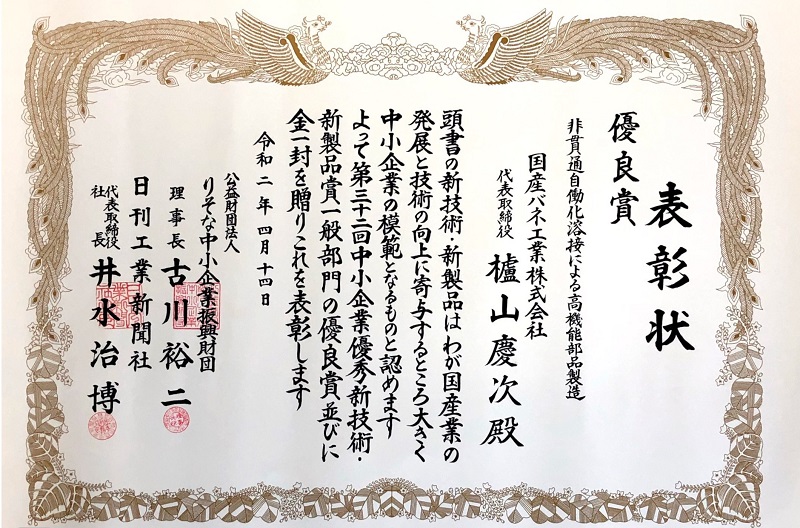 表彰状
優良賞
非貫通自働化溶接による高機能部品製造
国産バネ工業株式会社
代表取締役 櫨山慶次殿
頭書の新技術・新製品はわが国産業の
発展と技術の向上に寄与するところ大きく
中小企業の模範となるものと認めます
よって第三十二回中小企業優秀新技術・
新製品賞一般部門の優良賞並びに
金一封を贈りこれを表彰します
令和二年四月十四日
公益財団法人
りそな中小企業振興財団
理事長 古川裕二
日刊工業新聞社
代表取締役
社長 井水治博